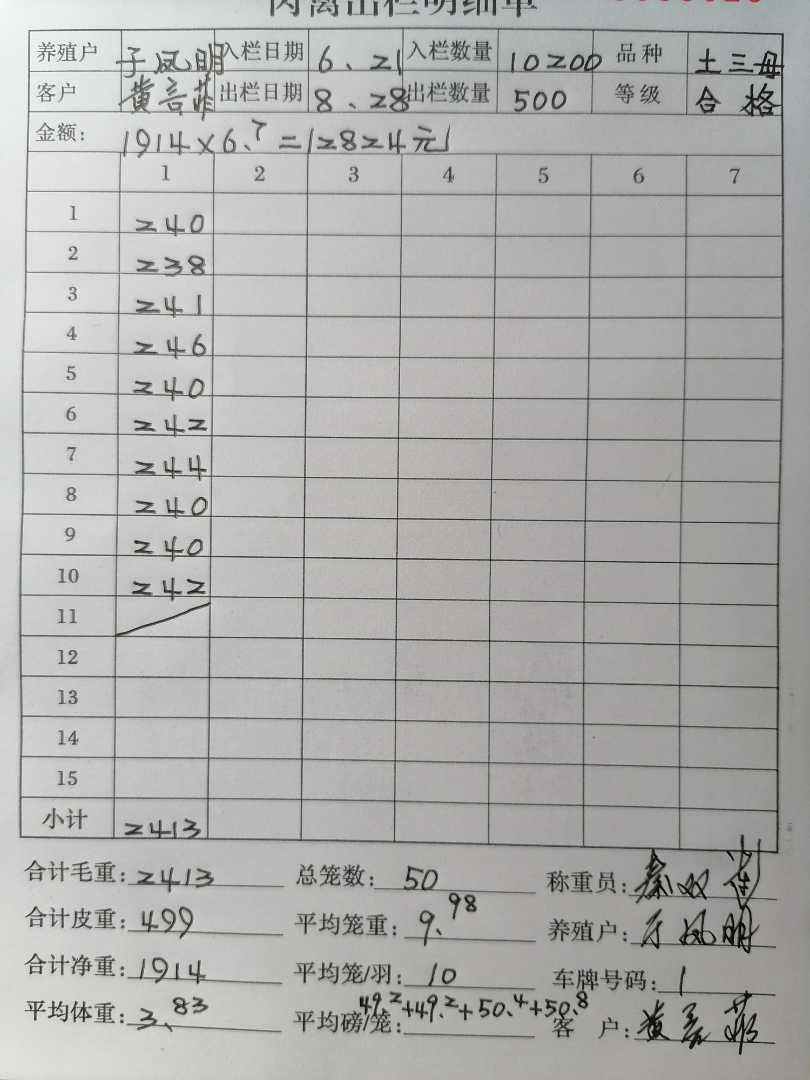 肉禽出栏明细单
养殖户 于凤明 入栏日期 6、21 入栏数量 10200 品种 土三母
客户 黄言菲 出栏日期 8、28 出栏数量 500 等级 合格
金额: 1914×6.7=12824元
1 2 3 4 5 6 7
1 240
2 238
3 241
4 246
5 240
6 242
7 244
8 240
9 240
10 242
11
12
13
14
15
小计 2413
合计毛重: 2413 总笼数: 50 称重员:
合计皮重: 499 平均笼重: 9.98 养殖户: 于凤明
合计净重: 1914 平均笼/羽: 10 车牌号码: 1
平均体重: 3.83 平均磅/笼: 49.2+49.2+50.4+50.8 客户: 黄言菲